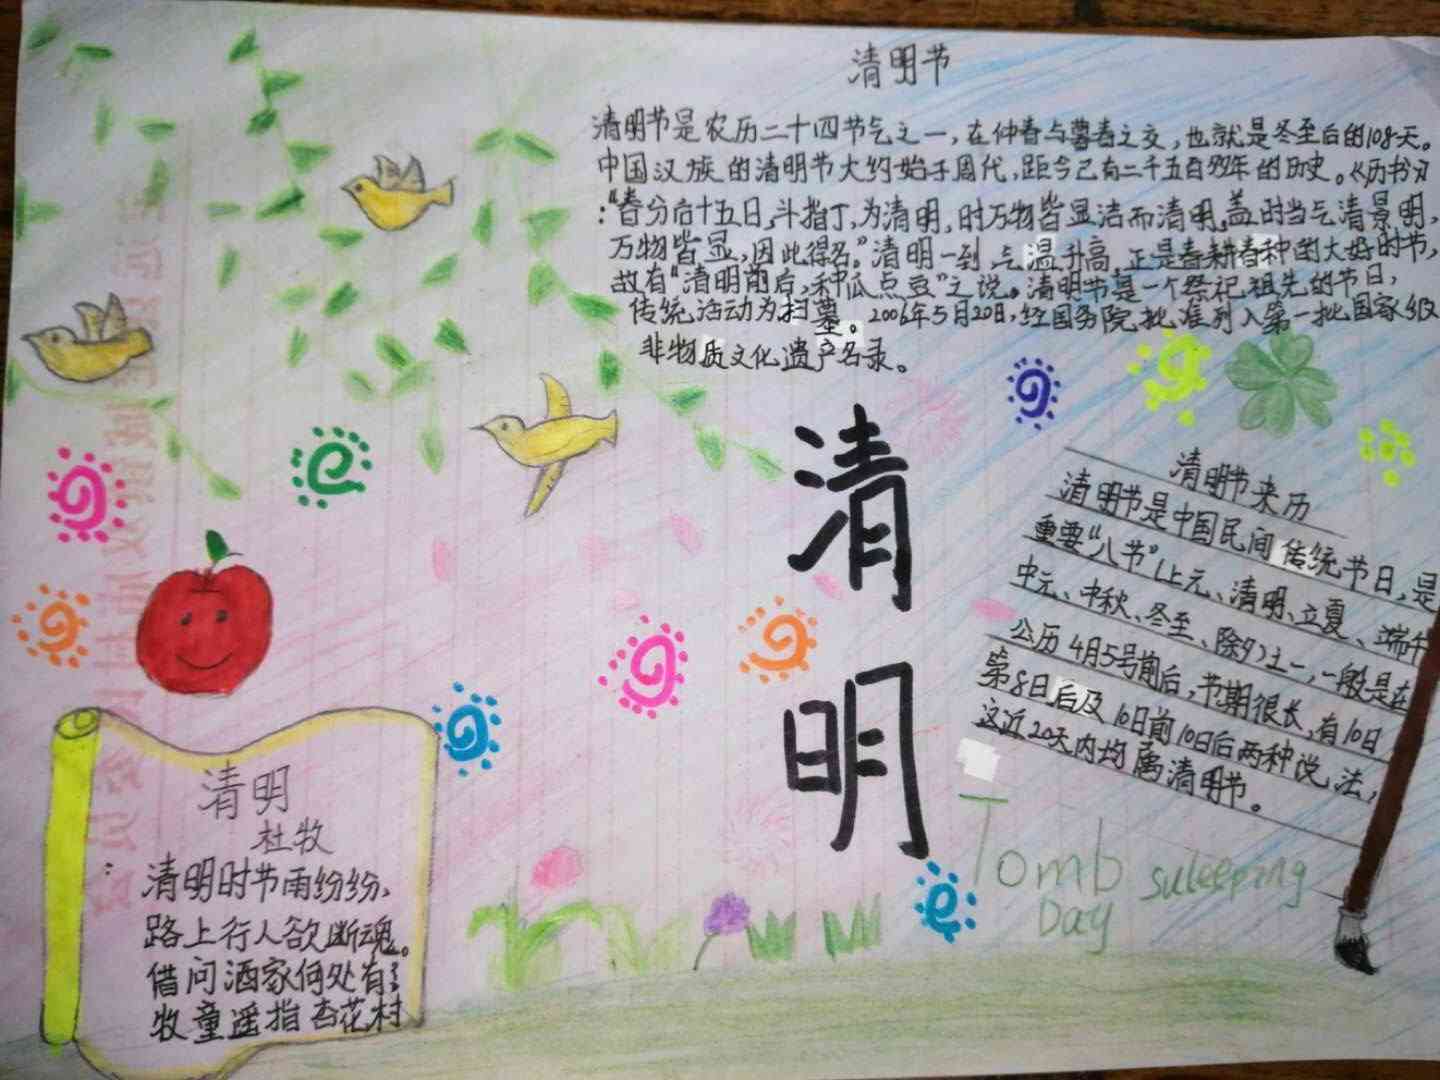 清明节
清明节是农历二十四节气之一，在仲春与暮春之交，也就是冬至后的108天。
中国汉族的清明节大约始于周代，距今已有二千五百多年的历史。《历书》
："春分后十五日，斗指丁，为清明，时万物皆显洁而清明，盖时当气清景明，
万物皆显，因此得名。"清明一到，气温升高，正是春耕春种的大好时节，
故有"清明前后，种瓜点豆"之说。清明节是一个祭祀祖先的节日，
传统活动为扫墓。2006年5月20日，经国务院批准列入第一批国家级
非物质文化遗产名录。
清
明
清明节来历
清明节是中国民间传统节日，是
重要"八节"（上元、清明、立夏、端午
中元、中秋、冬至、除夕）之一，一般是在
公历4月5号前后，节期很长，有10日
第8日后及10日前10日后两种说法，
这近20天内均属清明节。
Tomb suleeping
Day
清明
杜牧
清明时节雨纷纷、
路上行人欲断魂。
借问酒家何处有：
牧童遥指杏花村